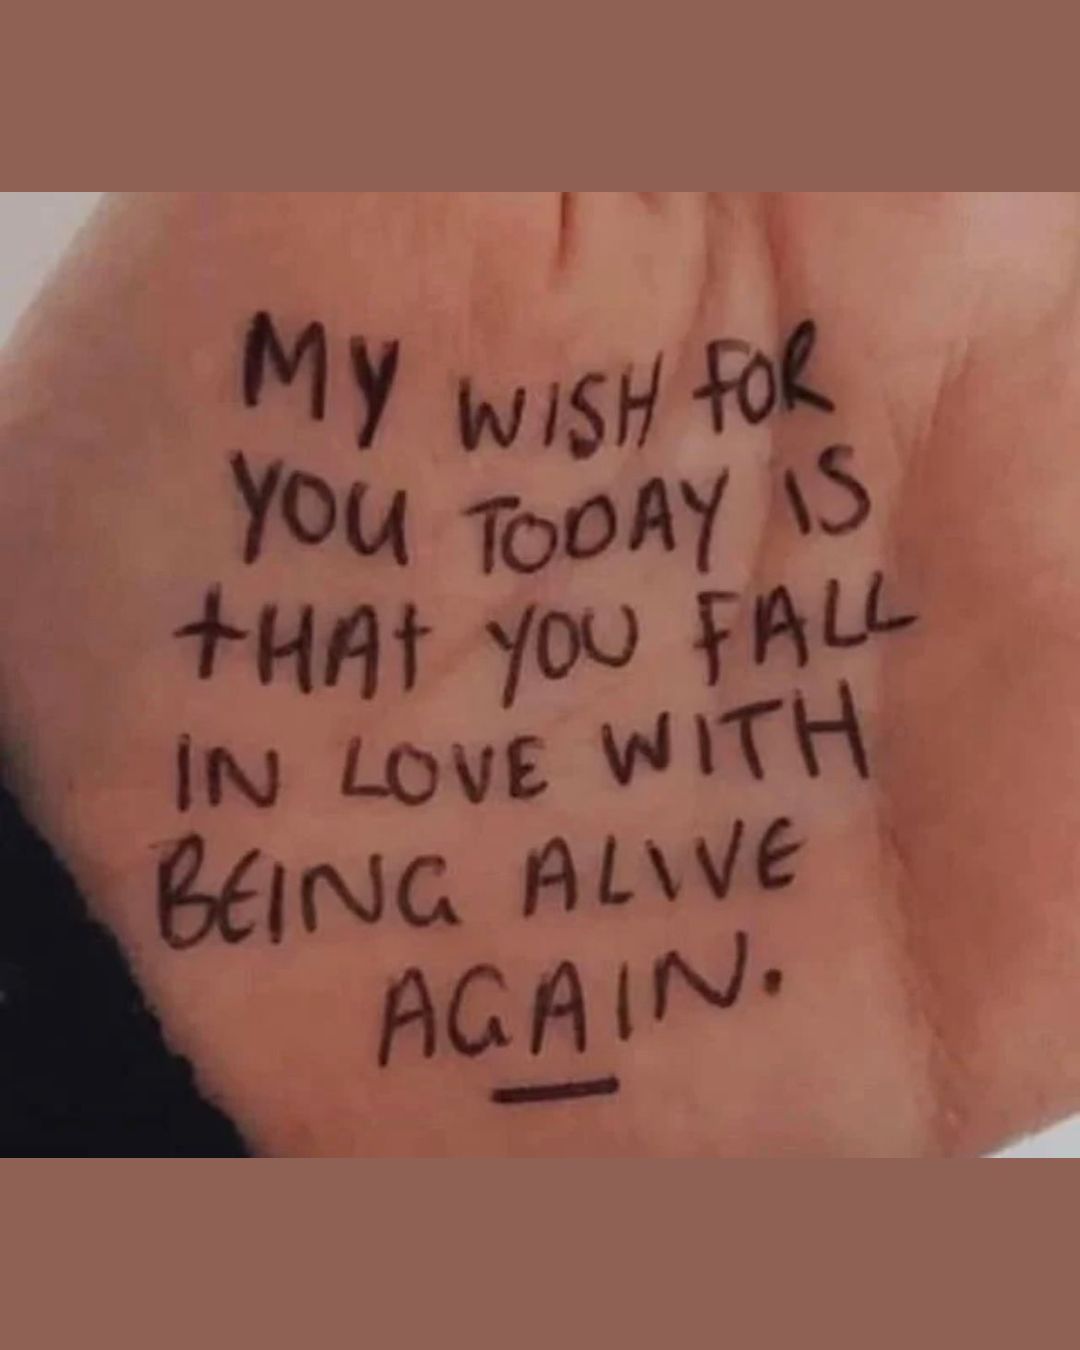 MY WISH FOR
YOU TODAY IS
tHAt YOU FALL
IN LOVE WITH
BEING ALIVE
AGAIN.